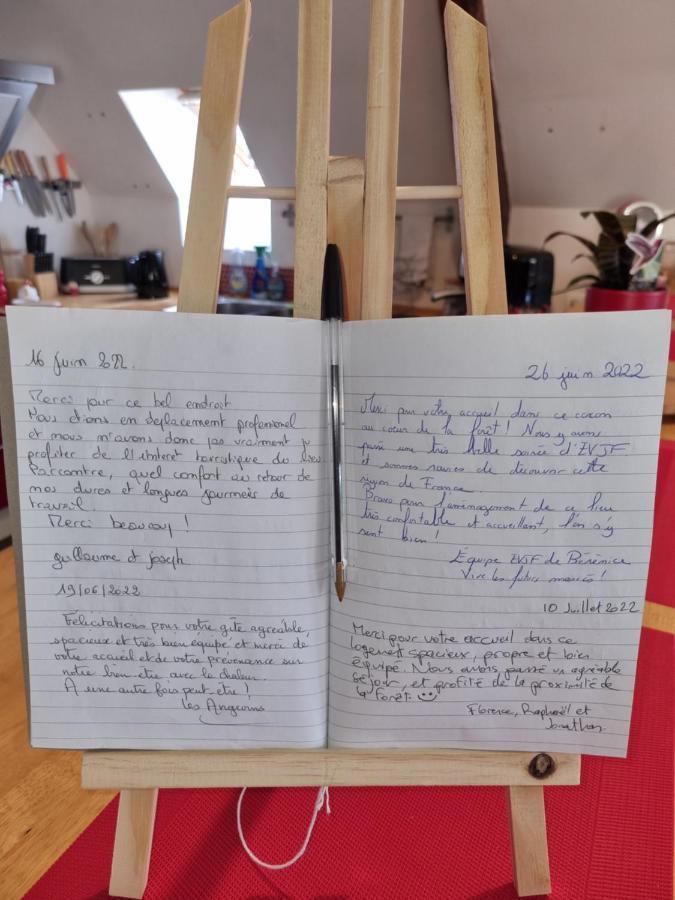 16 Juin 2022.
Merci pour ce bel endroit
Nous étions en deplacement professionel
et nous n'avons donc pas vraiment pu
profiter de l'intéret touristique du lieu
Par contre, quel confort au retour de
nos dures et longues journeés de
travail.
Merci beaucoup !
guillaume et Joseph
19/06/2022
Félicitations pour votre gîte agréable,
spacieux et très bien équipé et merci de
votre accueil et de votre prévenance sur
notre bien être avec la chaleur.
A une autre fois peut-être !
les Angevins
26 juin 2022
Merci pour votre accueil dans ce cocon
au cœur de la forêt ! Nous y avons
passé une très belle soirée d'EVJF
et sommes ravies de découvrir cette
région de France.
Bravo pour l'aménagement de ce lieu
très confortable et accueillant, l'on s'y
sent bien !
Équipe EVJF de Bérénice
Vive les futurs mariés !
10 Juillet 2022
Merci pour votre accueil dans ce
logement spacieux, propre et bien
équipé. Nous avons passé un agréable
séjour, et profité de la proximité de
la forêt. ☺
Florence, Raphaël et
Jonathan.